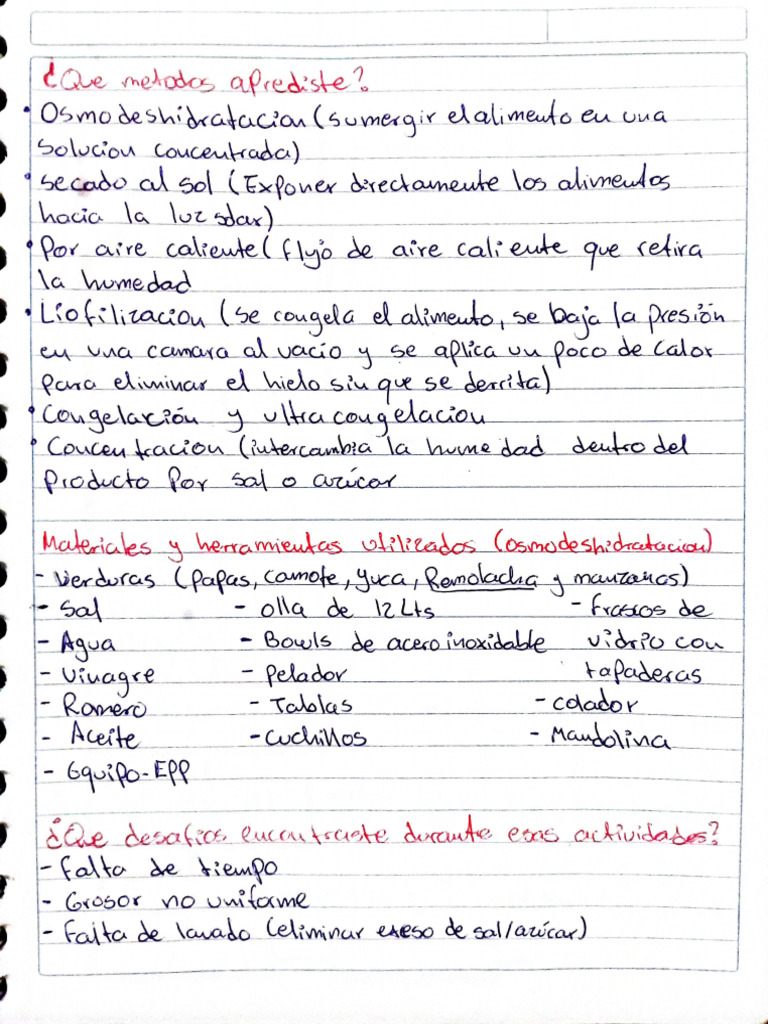 ¿Que metodos aprediste?
• Osmodeshidratacion (sumergir el alimento en una
solucion concentrada)
• secado al sol (Exponer directamente los alimentos
hacia la luz sdar)
• Por aire caliente (flujo de aire caliente que retira
la humedad
• Liofilizacion (se congela el alimento, se baja la presión
en una camara al vacio y se aplica un poco de calor
para eliminar el hielo sin que se derrita)
• Congelación y ultracongelacion
• Concentracion (intercambia la humedad dentro del
producto por sal o azúcar
Materiales y herramientas utilizados (osmodeshidratacion)
- Verduras (papas, camote, yuca, Remolacha y manzanas)
- Sal - olla de 12 Lts - frascos de
- Agua - Bowls de acero inoxidable vidrio con
- Vinagre - pelador tapaderas
- Romero - Tablas - colador
- Aceite - Cuchillos - Mandolina
- Equipo-EPP
¿Que desafios encontraste durante esas actividades?
- falta de tiempo
- Grosor no uniforme
- falta de lavado (eliminar exeso de sal/azúcar)